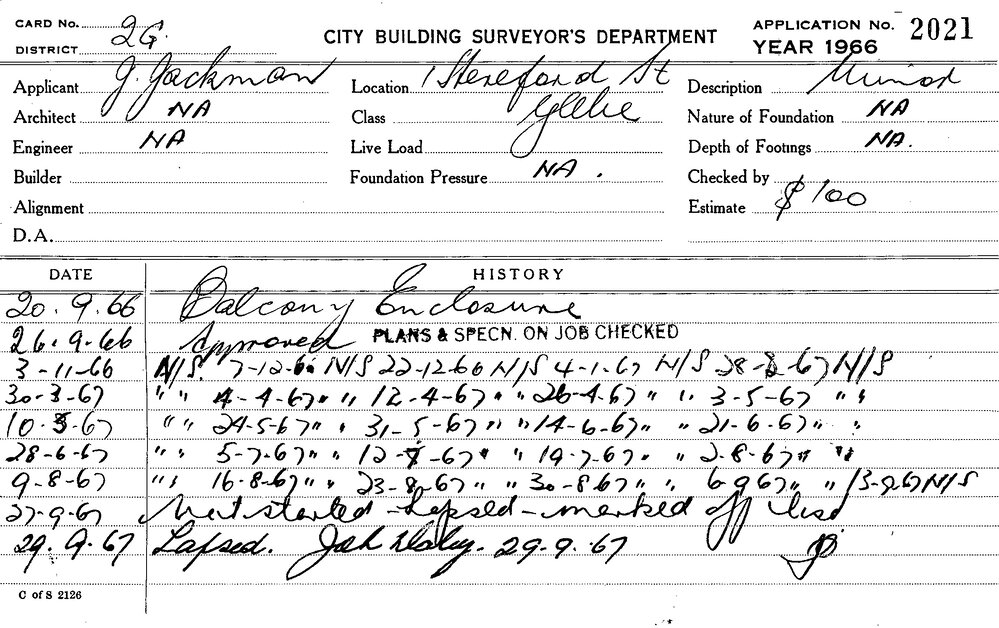 CARD No. 2G. CITY BUILDING SURVEYOR'S DEPARTMENT APPLICATION No. 2021
DISTRICT YEAR 1966
Applicant J. Jackman Location 1 Hereford St Description Minor
Architect NA Class Glebe Nature of Foundation NA
Engineer NA Live Load Depth of Footings NA.
Builder Foundation Pressure NA. Checked by
Alignment Estimate $100
D.A.
DATE HISTORY
20.9.66 Balcony Enclosure
26.9.66 Approved PLANS & SPECN. ON JOB CHECKED
3-11-66 N/S. 7-12-66 N/S 22-12-66 N/S 4-1-67 N/S 28-2-67 N/S
30-3-67 " " 4-4-67 " " 12-4-67 " " 26-4-67 " " 3-5-67 " "
10-5-67 " " 24-5-67 " " 31-5-67 " " 14-6-67 " " 21-6-67 " "
28-6-67 " " 5-7-67 " " 12-7-67 " " 19-7-67 " " 2-8-67 " "
9-8-67 " " 16-8-67 " " 23-8-67 " " 30-8-67 " " 6 9 67 " " 13-9-67 N/S
27-9-67 Not started - Lapsed - marked off list
29.9.67 Lapsed. 29.9.67
C of S 2126